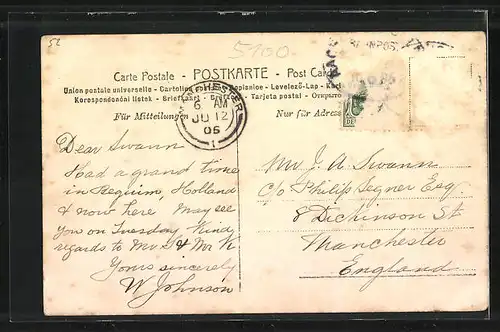 52
5100.
Carte Postale - POSTKARTE - Post Card
Union postale universelle - Cartolina
Levelező-Lap
Korespondenční lístek - Briefkaart
Tarjeta postal
Für Mitteilungen
Nur für Adresse
6 AM
JU 12
05
1
Dear Swann
Had a grand time
in Belgium, Holland
& now here May see
you on Tuesday Kind
regards to Mr S & Mr K
Yours sincerely
W Johnson
Mr J. A. Swann
c/o Philip Segner Esq
8 Dickinson St
Manchester
England